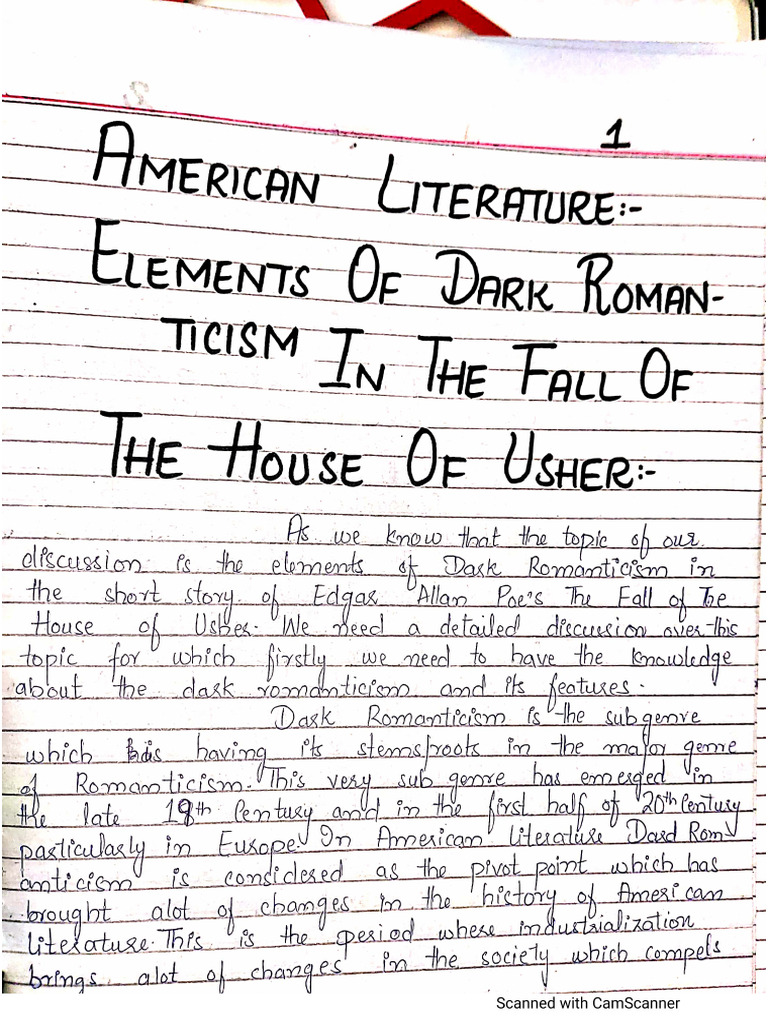 1
AMERICAN LITERATURE:-
ELEMENTS OF DARK ROMAN-
TICISM IN THE FALL OF
THE HOUSE OF USHER:-
As we know that the topic of our
discussion is the elements of Dark Romanticism in
the short story of Edgar Allan Poe's The Fall of The
House of Usher. We need a detailed discussion over this
topic for which firstly we need to have the knowledge
about the dark romanticism and its features.
Dark Romanticism is the subgenre
which is having its stems/roots in the major genre
of Romanticism. This very sub genre has emerged in
the late 18th Century and in the first half of 20th Century
particularly in Europe. In American literature Dard Rom
anticism is considered as the pivot point which has
brought alot of changes in the history of American
literature. This is the period where industrialization
brings alot of changes in the society which compels
Scanned with CamScanner